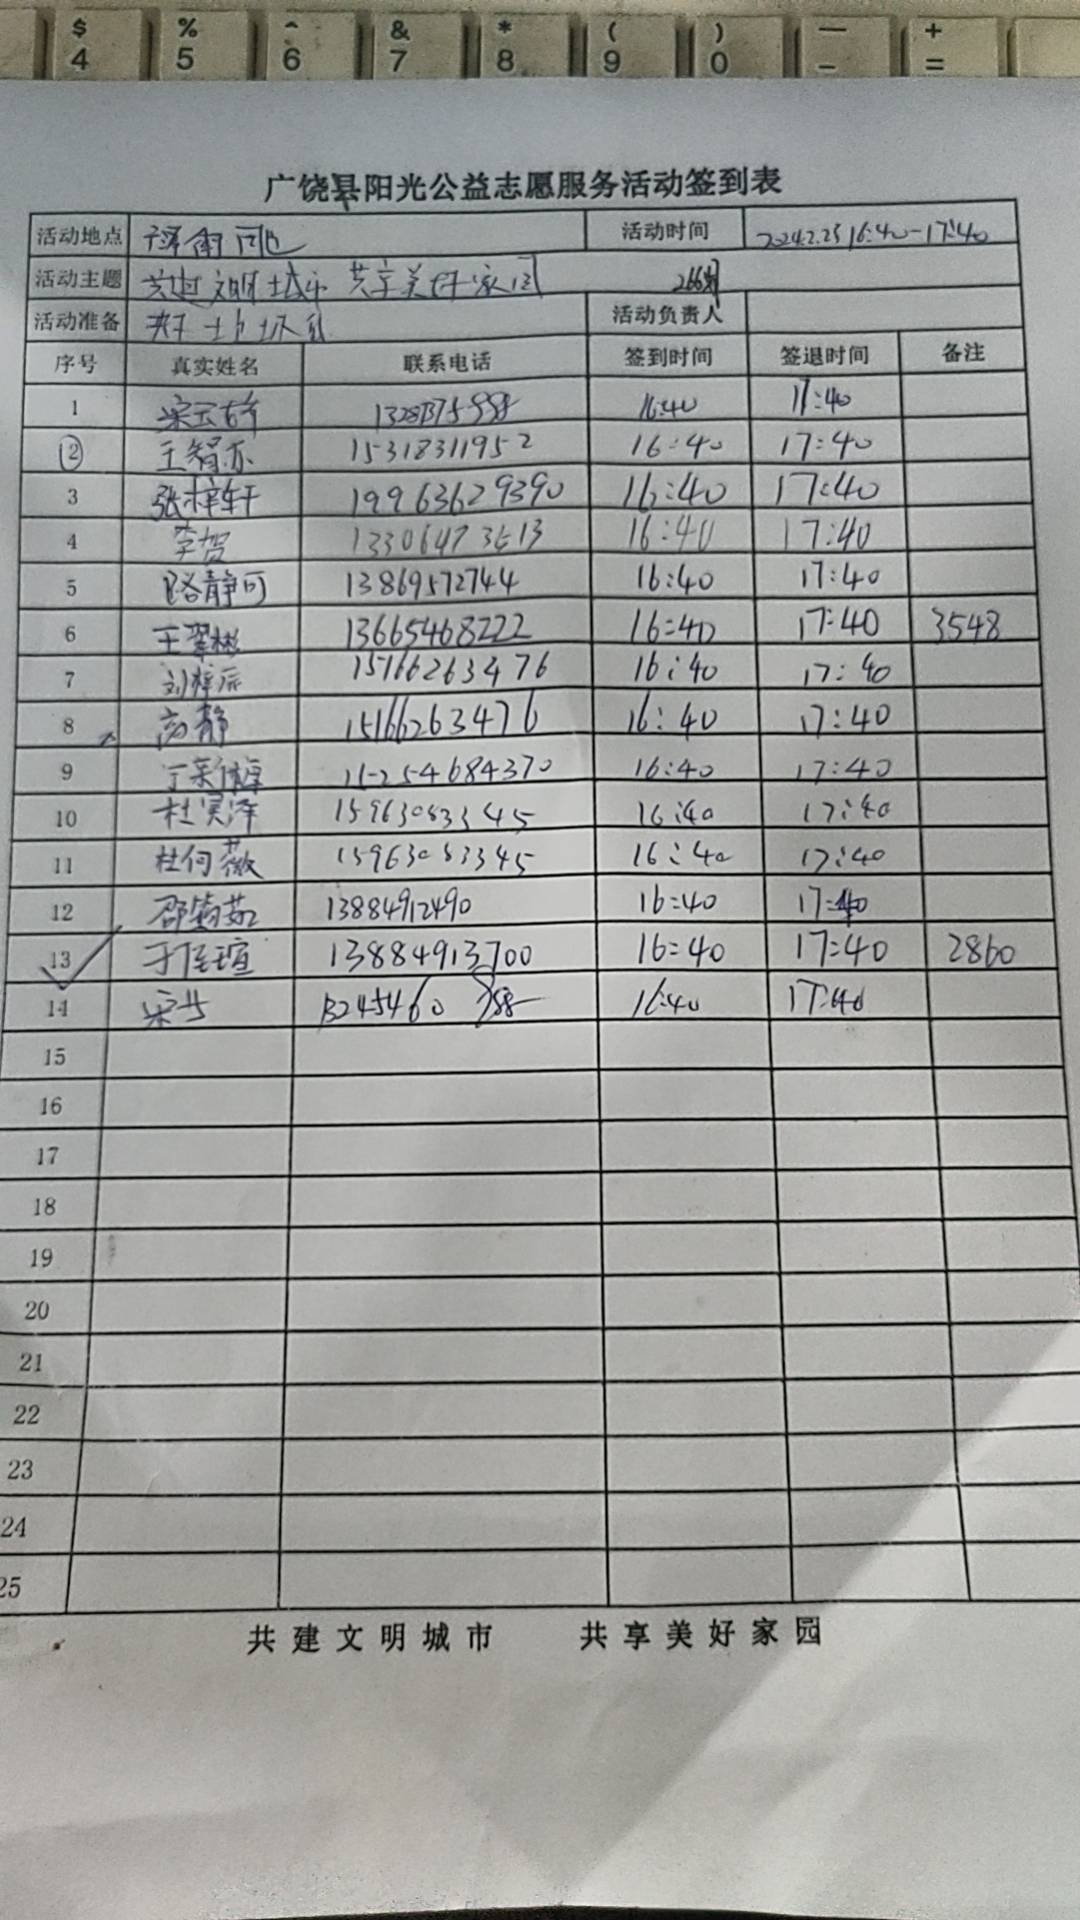 $ % ^ & * ( ) — +
4 5 6 7 8 9 0 - =
广饶县阳光公益志愿服务活动签到表
活动地点 活动时间 2024.2.25 16:40-17:40
活动主题 共建文明城市 共享美好家园 266期
活动准备 活动负责人
序号 真实姓名 联系电话 签到时间 签退时间 备注
1 16:40 17:40
2 王智亦 15318311952 16:40 17:40
3 张梓轩 19963629390 16:40 17:40
4 李贺 16:40 17:40
5 路静可 13869572744 16:40 17:40
6 王翠彬 13665468222 16:40 17:40 3548
7 刘梓辰 15166263476 16:40 17:40
8 高静 15166263476 16:40 17:40
9 15254684370 16:40 17:40
10 杜昊泽 15963083345 16:40 17:40
11 杜何薇 15963083345 16:40 17:40
12 13884912490 16:40 17:40
13 13884913700 16:40 17:40 2860
14 16:40 17:40
15
16
17
18
19
20
21
22
23
24
25
共建文明城市 共享美好家园